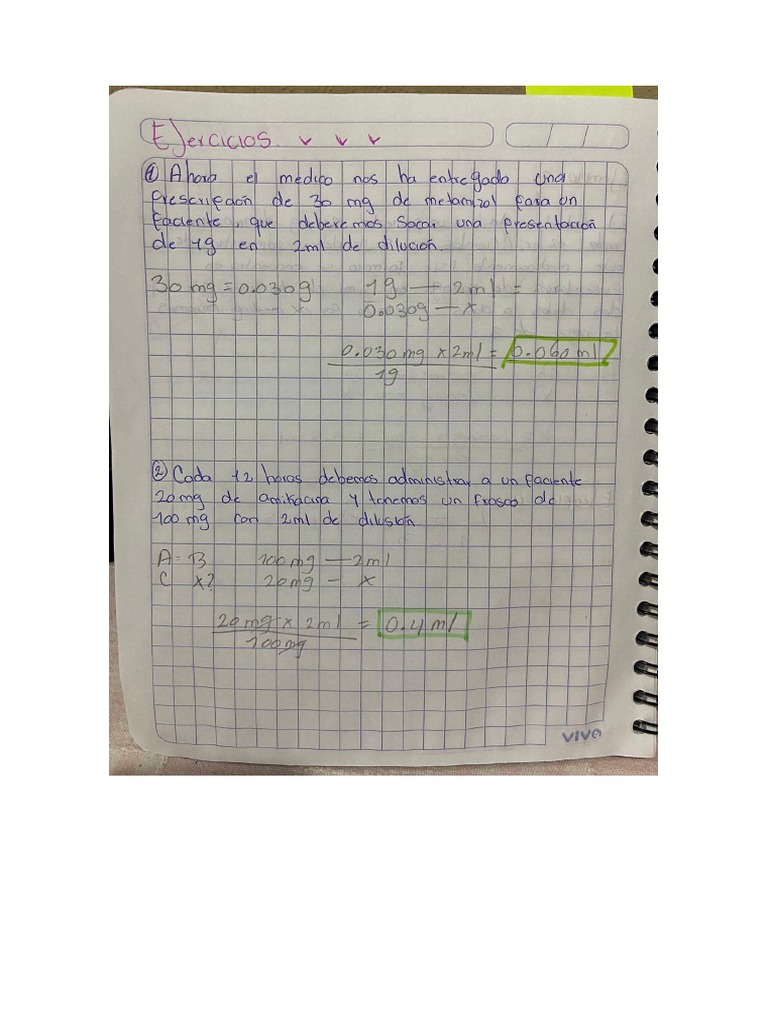 Ejercicios
① Ahora el medico nos ha entregado una
prescripción de 30 mg de metamizol para un
paciente, que deberemos sacar una presentación
de 1g en 2ml de dilución.
30 mg = 0.030g 1g — 2ml =
0.030g — x
0.030 mg x 2ml = 0.060 ml
1g
② Cada 12 horas debemos administrar a un paciente
20mg de amikacina y tenemos un frasco de
100 mg con 2ml de dilusión
A = B 100mg — 2ml
C x? 20mg — x
20 mg x 2ml = 0.4 ml
100mg
vivo